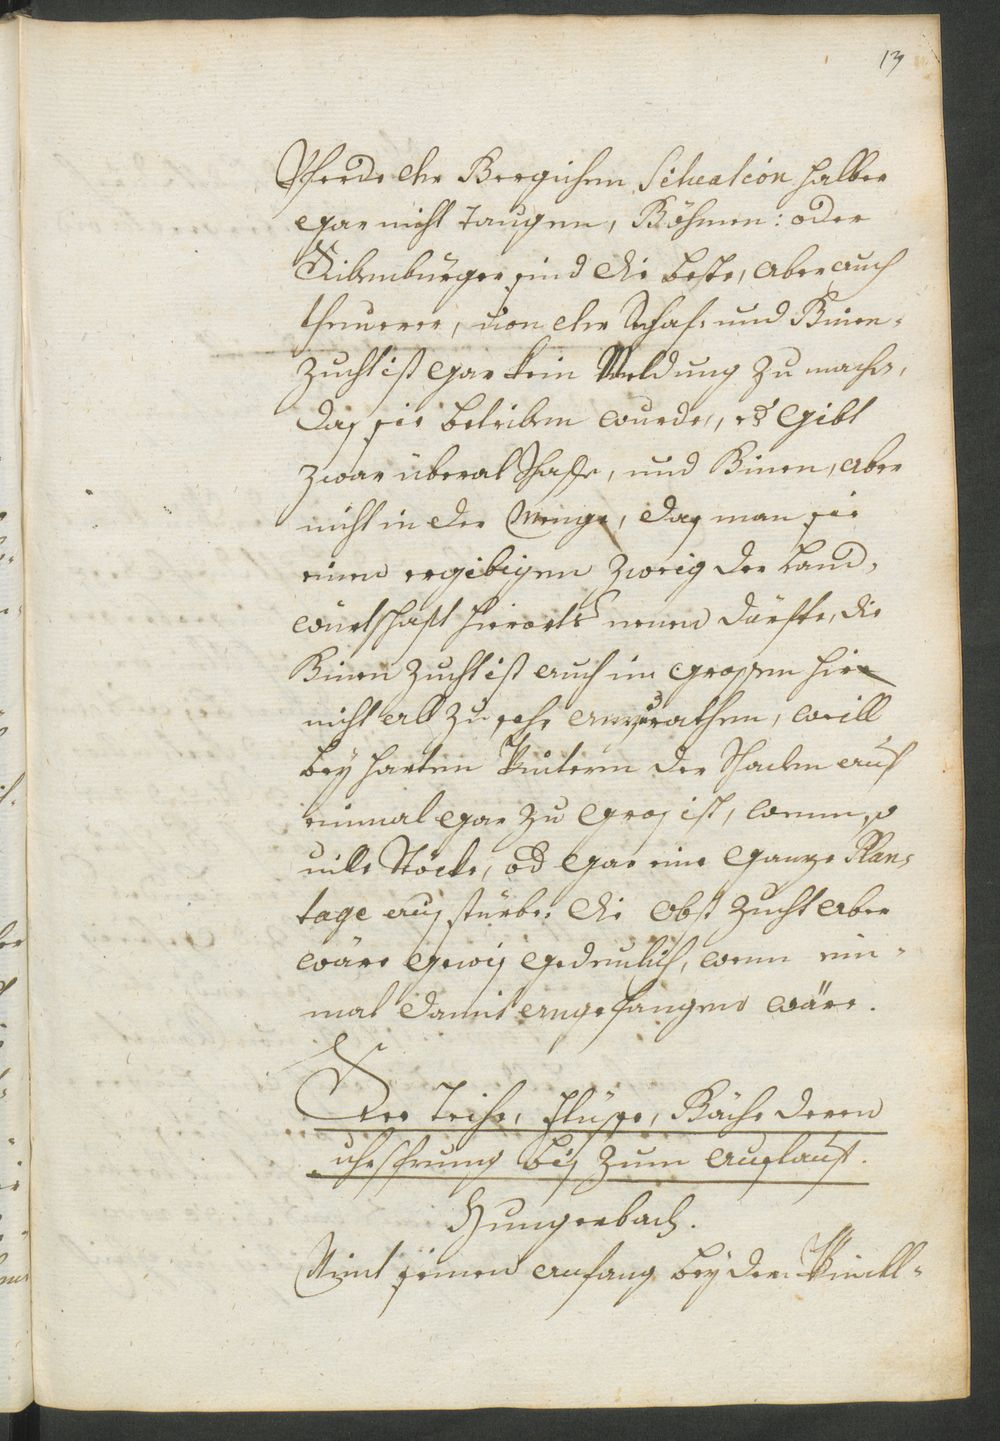 13
Pferde der Bergichen Situation halber
gar nicht taugen, Böhmen: oder
Sibenbürger sind die beste, aber auch
theuerer, von der Schaf: und Binen-
zucht ist gar kein Meldung zu machen,
daß sie betriben wurden, es gibt
zwar überal Schaffe, und Binen, aber
nicht in der Menge, daß man sie
einen ergibigen Zweig der Land-
würtschaft hierorts nenen därfte, die
Binen zucht ist auch im grossen hier
nicht all zu sehr anzurathen, weill
bey harten Wintern der Schaden auf
einmal gar zu groß ist, wenn so
ville Stöcke, od gar eine ganze Plan-
tage aus stürbe. die Obst zucht aber
wäre gewiß gedeulich, wenn ein-
mal damit angefangen wäre.
Der Teiche, Flüsse, Bäche deren
uhrsprung biß zum Auslauf.
Hungerbach.
Nimt seinen anfang bey den Winckl-